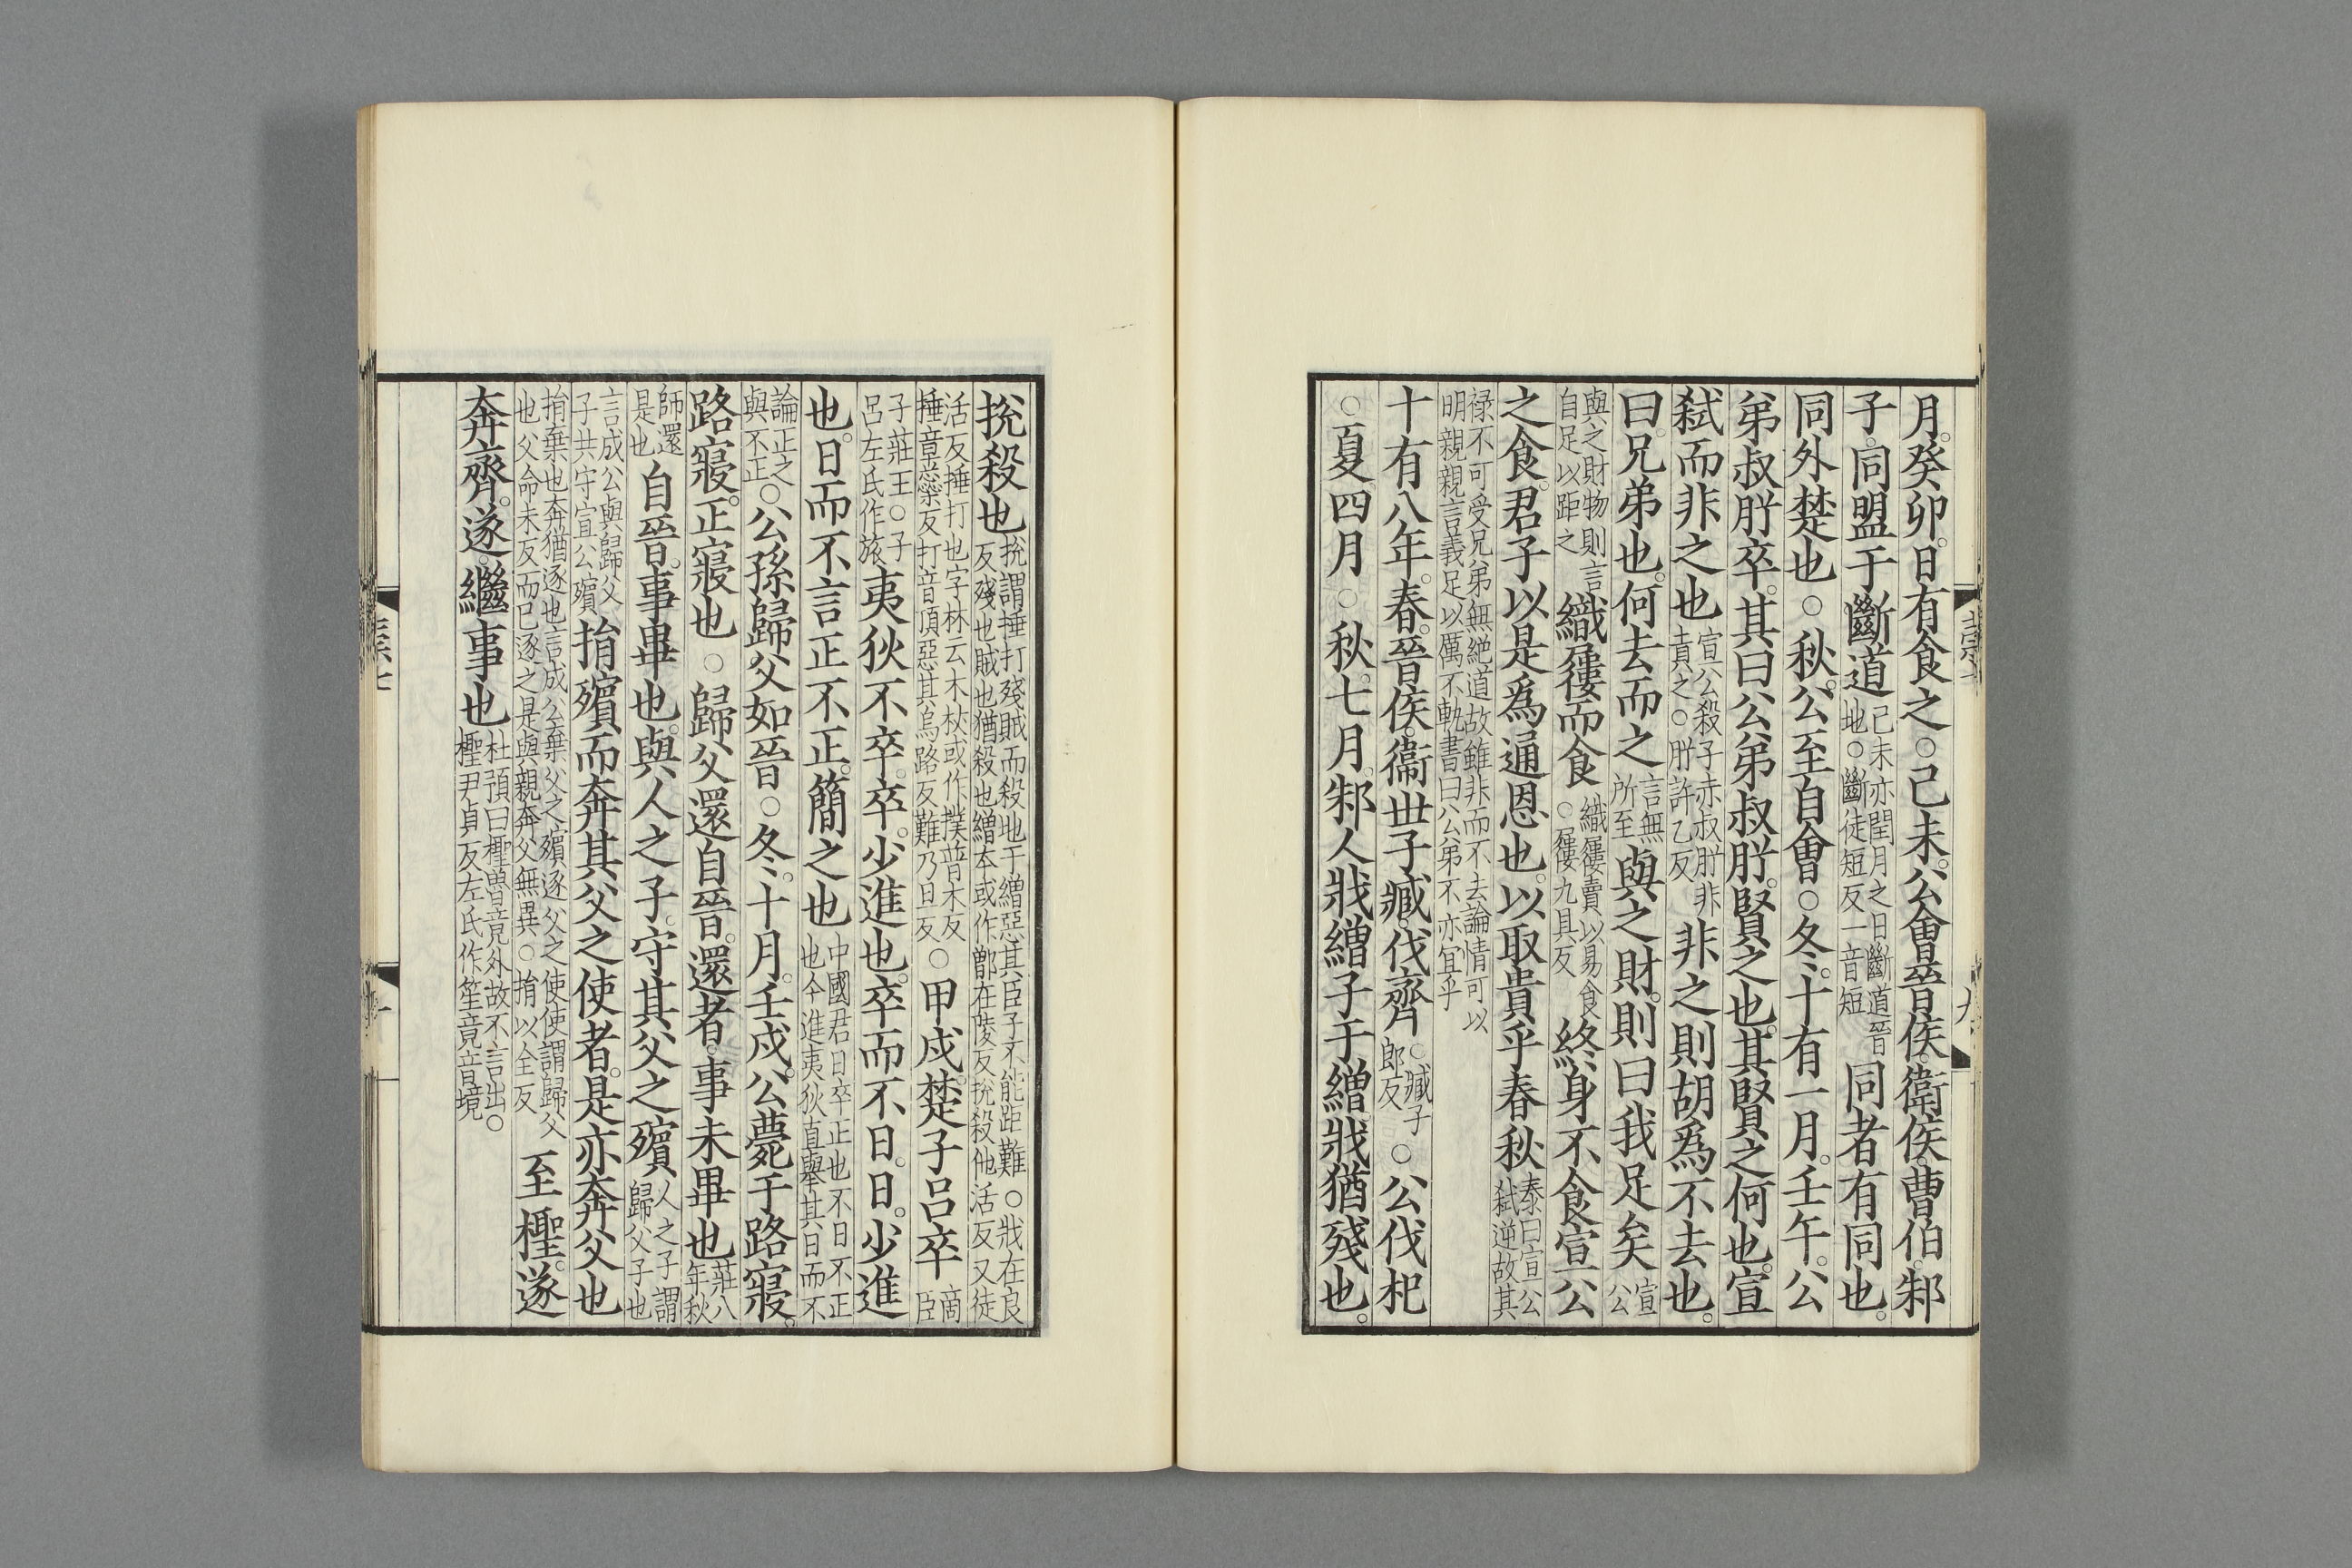 月。癸卯。日有食之○己未。公會晉侯。衛侯。曹伯。邾
子。同盟于斷道己未亦閏月之日斷道晉地○斷徒短反一音短同者有同也。
同外楚也○秋。公至自會○冬。十有一月。壬午。公
弟叔肸卒。其曰公弟叔肸。賢之也。其賢之何也。宣
弒而非之也宣公殺子赤叔肸非責之○肸許乙反非之則胡爲不去也。
曰。兄弟也。何去而之言無所至與之財。則曰我足矣宣公
與之財物則言自足以距之織屨而食織屨賣以易食○屨九具反終身不食宣公
之食。君子以是爲通恩也。以取貴乎春秋泰曰宣公弒逆故其
祿不可受兄弟無絶道故雖非而不去論情可以明親親言義足以厲不軌書曰公弟不亦宜乎
十有八年。春。晉侯。衞世子臧。伐齊○臧子郎反○公伐杞
○夏四月○秋。七月。邾人戕繒子于繒。戕猶殘也。
捝殺也捝謂捶打殘賊而殺地于繒惡其臣子不能距難○戕在良反殘也賊也猶殺也繒本或作鄫在陵反捝殺他活反又徒
活反捶打也字林云木杖或作撲普木反捶章蘂反打音頂惡其烏路反難乃旦反○甲戌。楚子呂卒商臣
子莊王○子呂左氏作旅夷狄不卒。卒。少進也。卒而不日。日。少進
也。日而不言正不正。簡之也中國君日卒正也不日不正也今進夷狄直舉其日而不
論正之與不正○公孫歸父如晉○冬。十月。壬戌。公薨于路寢。
路寢。正寢也○歸父還自晉。還者。事未畢也莊八年秋
師還是也自晉。事畢也。與人之子。守其父之殯人之子謂歸父子也
言成公與歸父子共守宣公殯捐殯而奔其父之使者。是亦奔父也
捐棄也奔猶逐也言成公棄父之殯逐父之使使謂歸父也父命未反而已逐之是與親奔父無異○捐以全反至檉。遂
奔齊。遂。繼事也杜預曰檉魯竟外故不言出○檉尹貞反左氏作笙竟音境